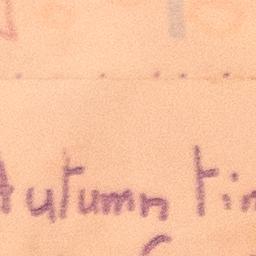 Autumn tim